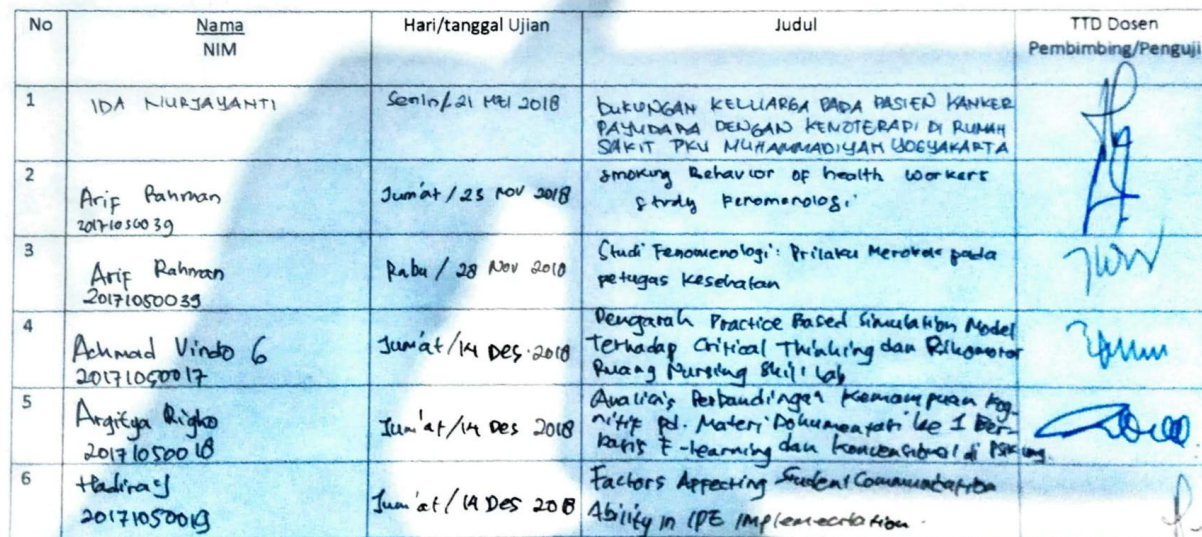 No Nama Hari/tanggal Ujian Judul TTD Dosen
NIM Pembimbing/Penguji
1 IDA NURJAYANTI Senin/21 MEI 2018 DUKUNGAN KELUARGA PADA PASIEN KANKER
PAYUDARA DENGAN KEMOTERAPI DI RUMAH
SAKIT PKU MUHAMMADIYAH YOGYAKARTA
2 Arif Rahman Jum'at / 23 NOV 2018 smoking Behavior of health workers
20171050039 study Fenomenologi
3 Arif Rahman Rabu / 28 Nov 2018 Studi Fenomenologi: Prilaku Merokok pada
20171050039 petugas Kesehatan
4 Achmad Vindo G Jum'at/14 Des 2018 Pengaruh Practice Based Simulation Model
20171050017 Terhadap Critical Thinking dan Psikomotor
Ruang Nursing Skill Lab
5 Argitya Righo Jum'at/14 Des 2018 Analisis Perbandingan Kemampuan Kog-
20171050018 nitif pd. Materi Dokumentasi ke 1 Ber-
basis E-learning dan konvensional di PSIK
6 Hadiras Jum'at/14 Des 2018 Factors Affecting Student Communication
20171050019 Ability in IPE Implementation.